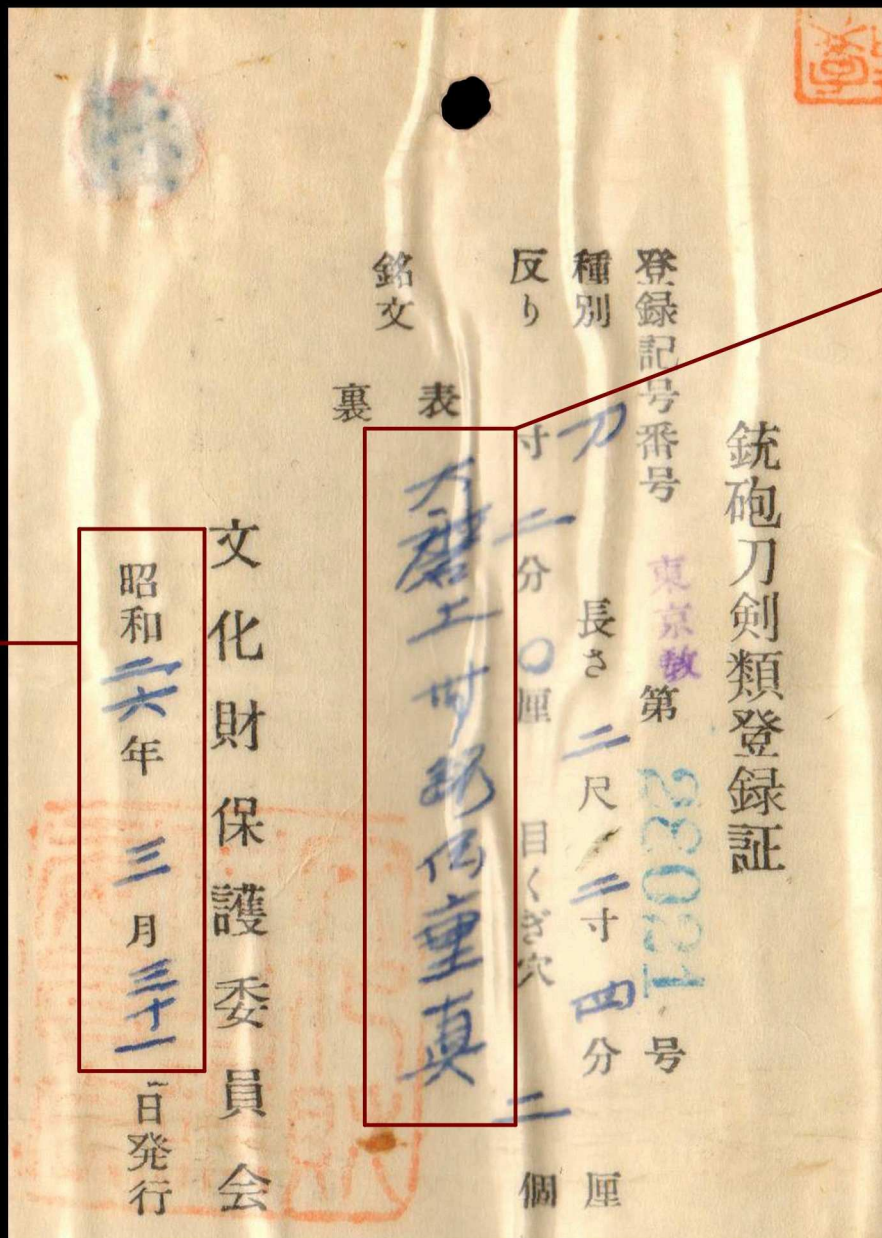 銃砲刀剣類登録証
登録記号番号 東京教 第 号
種別 刀 長さ 二尺 二寸 四分 厘
反り 寸 二分 〇厘 目くぎ穴 二個
銘文 表 大磨上無銘伝重真
裏
文化財保護委員会
昭和二六年 三月三十一日発行